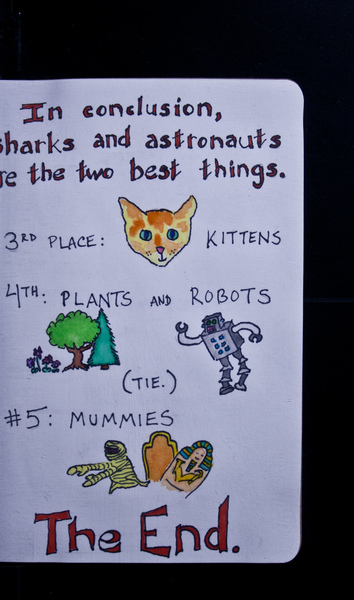 In conclusion,
sharks and astronauts
re the two best things.
3RD PLACE: KITTENS
4TH: PLANTS AND ROBOTS
(TIE.)
#5: MUMMIES
The End.